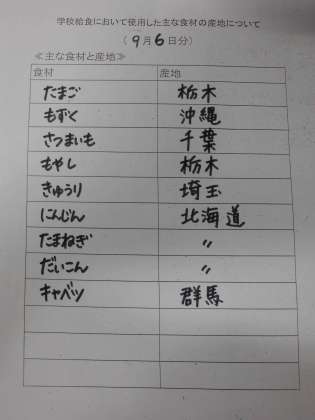 学校給食において使用した主な食材の産地について
（9月6日分）
≪主な食材と産地≫
食材 産地
たまご 栃木
もずく 沖縄
さつまいも 千葉
もやし 栃木
きゅうり 埼玉
にんじん 北海道
たまねぎ 〃
だいこん 〃
キャベツ 群馬